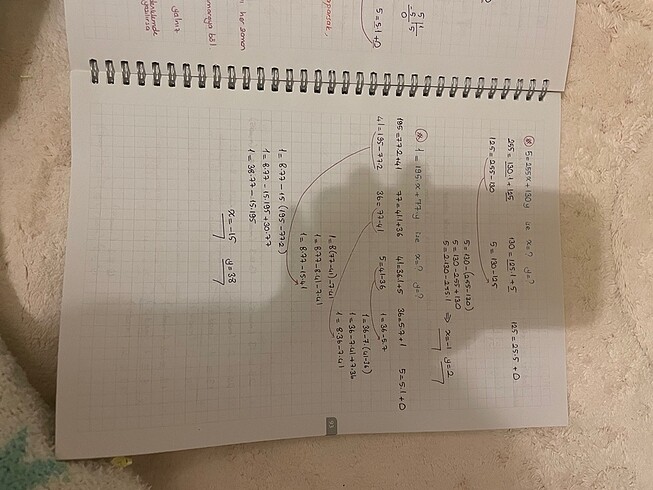 5 = 255x + 130y ise x=? y=?
255 = 130.1 + 125 130 = 125.1 + 5 125 = 25.5 + 0
125 = 255 - 130 5 = 130 - 125
5 = 130 - (255 - 130)
5 = 130 - 255 + 130
5 = 2.130 - 255.1 ⇒ x=-1 y=2
1 = 195x + 77y ise x=? y=?
195 = 77.2 + 41 77 = 41.1 + 36 41 = 36.1 + 5 36 = 5.7 + 1 5 = 5.1 + 0
41 = 195 - 77.2 36 = 77 - 41 5 = 41 - 36 1 = 36 - 5.7
1 = 36 - 7.(41-36)
1 = 36 - 7.41 + 7.36
1 = 8.36 - 7.41
1 = 8(77-41) - 7.41
1 = 8.77 - 8.41 - 7.41
1 = 8.77 - 15.41
1 = 8.77 - 15 (195 - 77.2)
1 = 8.77 - 15.195 + 30.77
1 = 38.77 - 15.195
x = -15 y = 38
5 = 5.1 + 0
her
yalnız
93